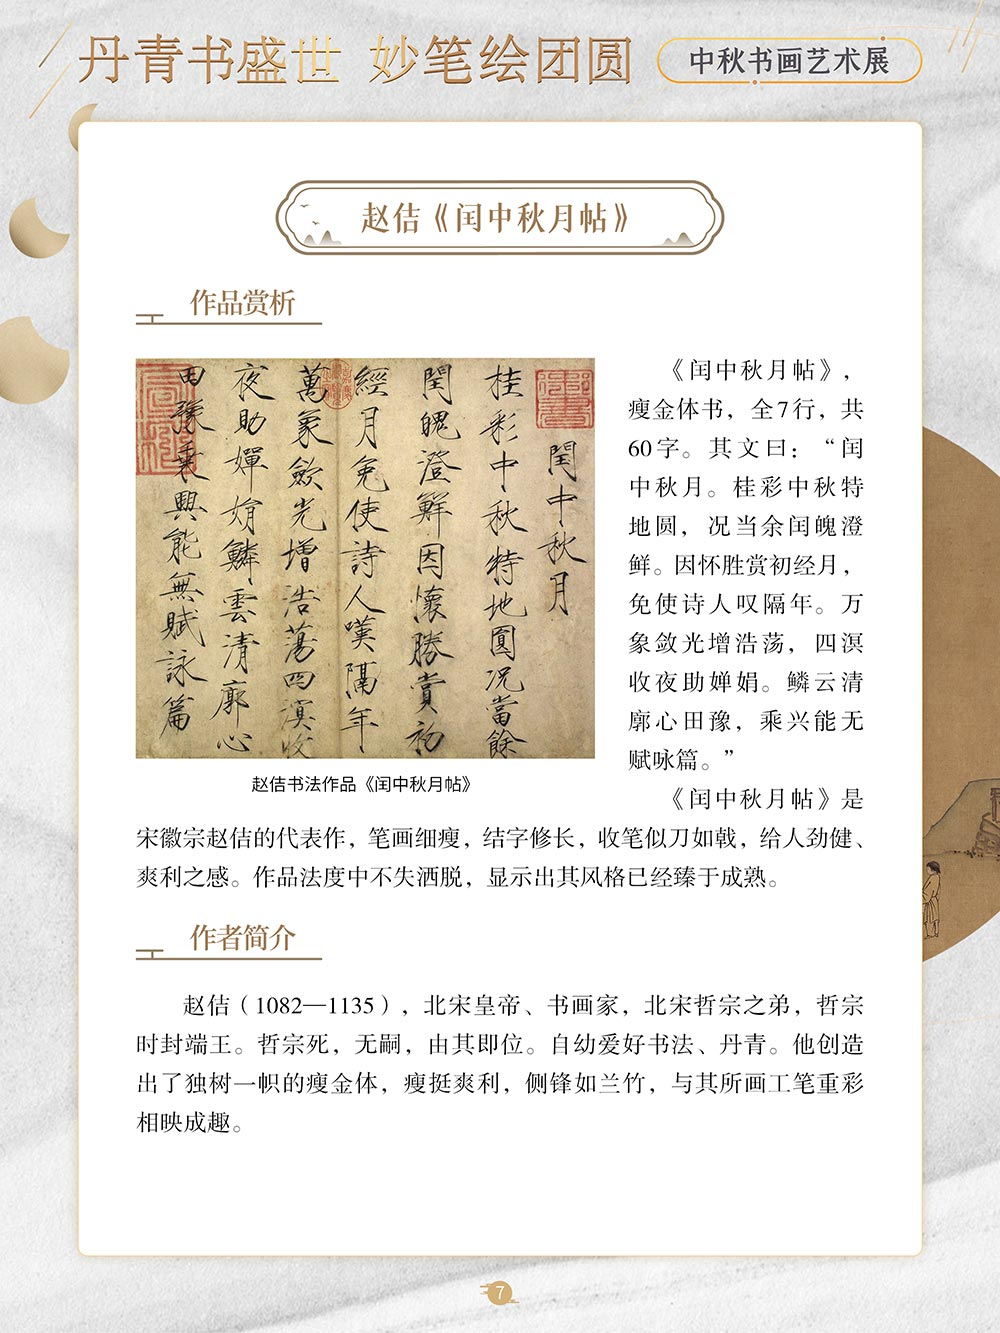 丹青书盛世 妙笔绘团圆 中秋书画艺术展
赵佶《闰中秋月帖》
作品赏析
閏中秋月
桂彩中秋特地圓況當餘
閏魄澄鮮因懷勝賞初
經月免使詩人嘆隔年
萬象斂光增浩蕩四溟收
夜助嬋娟鱗雲清廓心
田豫乘興能無賦詠篇
赵佶书法作品《闰中秋月帖》
《闰中秋月帖》,
瘦金体书，全7行，共
60字。其文曰：“闰
中秋月。桂彩中秋特
地圆，况当余闰魄澄
鲜。因怀胜赏初经月，
免使诗人叹隔年。万
象敛光增浩荡，四溟
收夜助婵娟。鳞云清
廓心田豫，乘兴能无
赋咏篇。”
《闰中秋月帖》是
宋徽宗赵佶的代表作，笔画细瘦，结字修长，收笔似刀如戟，给人劲健、
爽利之感。作品法度中不失洒脱，显示出其风格已经臻于成熟。
作者简介
赵佶（1082—1135），北宋皇帝、书画家，北宋哲宗之弟，哲宗
时封端王。哲宗死，无嗣，由其即位。自幼爱好书法、丹青。他创造
出了独树一帜的瘦金体，瘦挺爽利，侧锋如兰竹，与其所画工笔重彩
相映成趣。
7